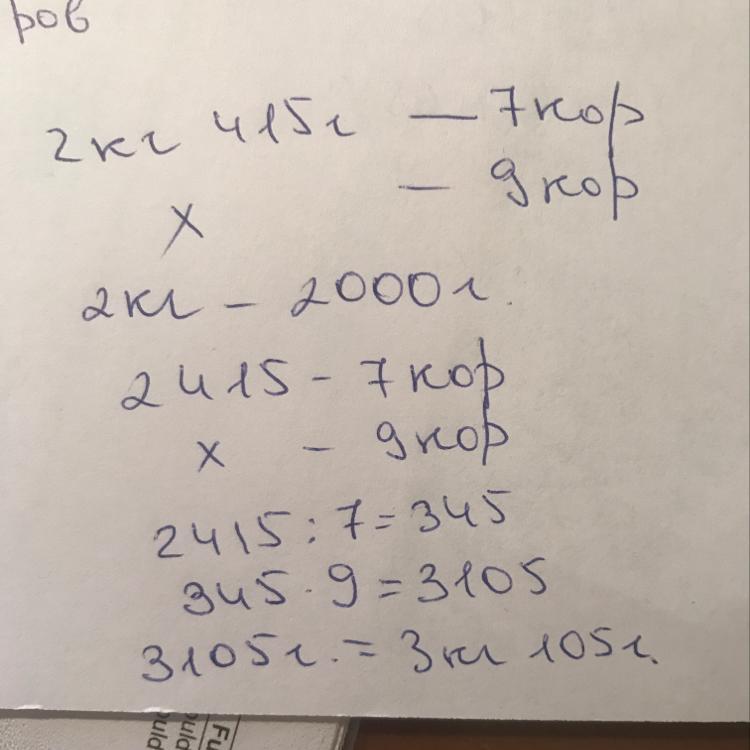 ров
2кг 415г — 7кор
— 9кор
х
2кг – 2000г.
2415 – 7кор
х – 9кор
2415 : 7 = 345
345 · 9 = 3105
3105г. = 3кг 105г.
Fu
ould
ould